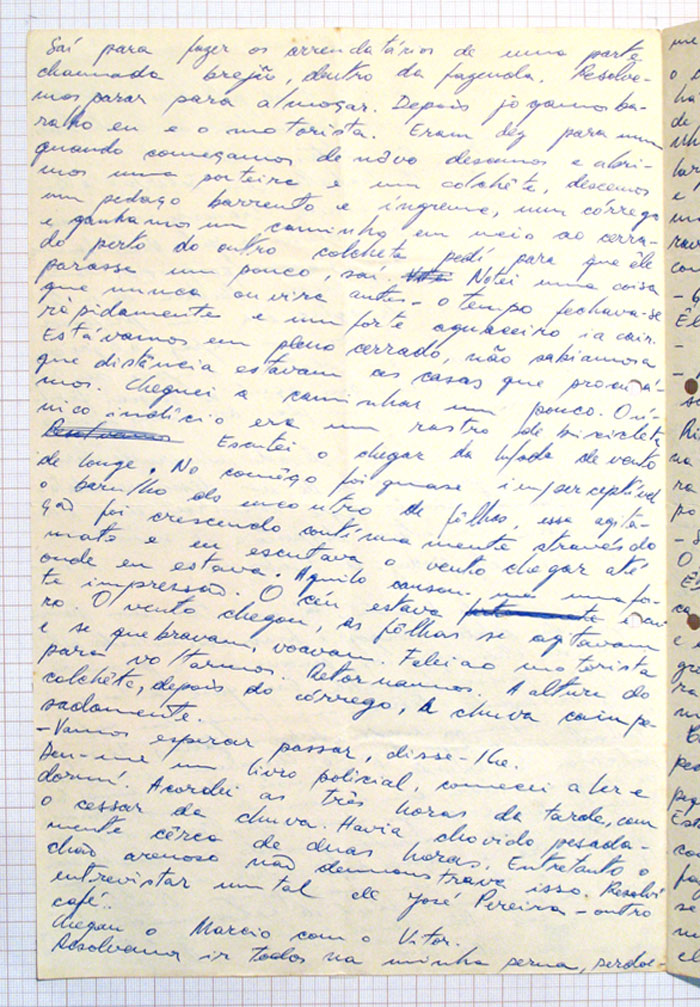 Saí para fazer os arrendatários de uma parte
chamada brejão, dentro da fazenda. Resolve-
mos parar para almoçar. Depois jogamos ba-
ralho eu e o motorista. Eram dez para uma
quando começamos de nôvo descemos e abri-
mos uma porteira e um colchête, descemos
um pedaço barrento e íngreme, num córrego
e ganhamos um caminho em meio ao cerra-
do perto do outro colchete pedí para que êle
parasse um pouco, saí. Notei uma coisa
que nunca ouvira antes - o tempo fechava-se
ràpidamente e um forte aguaceiro ia cair.
Estávamos em pleno cerrado, não sabiamos a
que distância estavam as casas que procurá-
mos. Cheguei a caminhar um pouco. O ú-
nico indício era um rastro de bicicleta
Resolvemos Escutei o chegar da lufada de vento
de longe. No comêço foi quase imperceptível
o barulho do encontro de fôlhas, essa agita-
ção foi crescendo contínuamente através do
mato e eu escutava o vento chegar até
onde eu estava. Aquilo causou-me uma for-
te impressão. O céu estava escu
ro. O vento chegou, as fôlhas se agitavam
e se quebravam, voavam. Falei ao motorista
para voltarmos. Retornamos. A altura do
colchête, depois do córrego, a chuva caiu pe-
sadamente.
- Vamos esperar passar, disse-lhe.
Deu-me um livro policial, comecei a ler e
dormí. Acordei as três horas da tarde, com
o cessar da chuva. Havia chovido pesada-
mente cêrca de duas horas. Entretanto o
chão arenoso não demonstrava isso. Resolví
entrevistar um tal de José Pereira - outro
café.
Chegou o Marcio com o Vitor.
Resolvemos ir todos na minha perua,